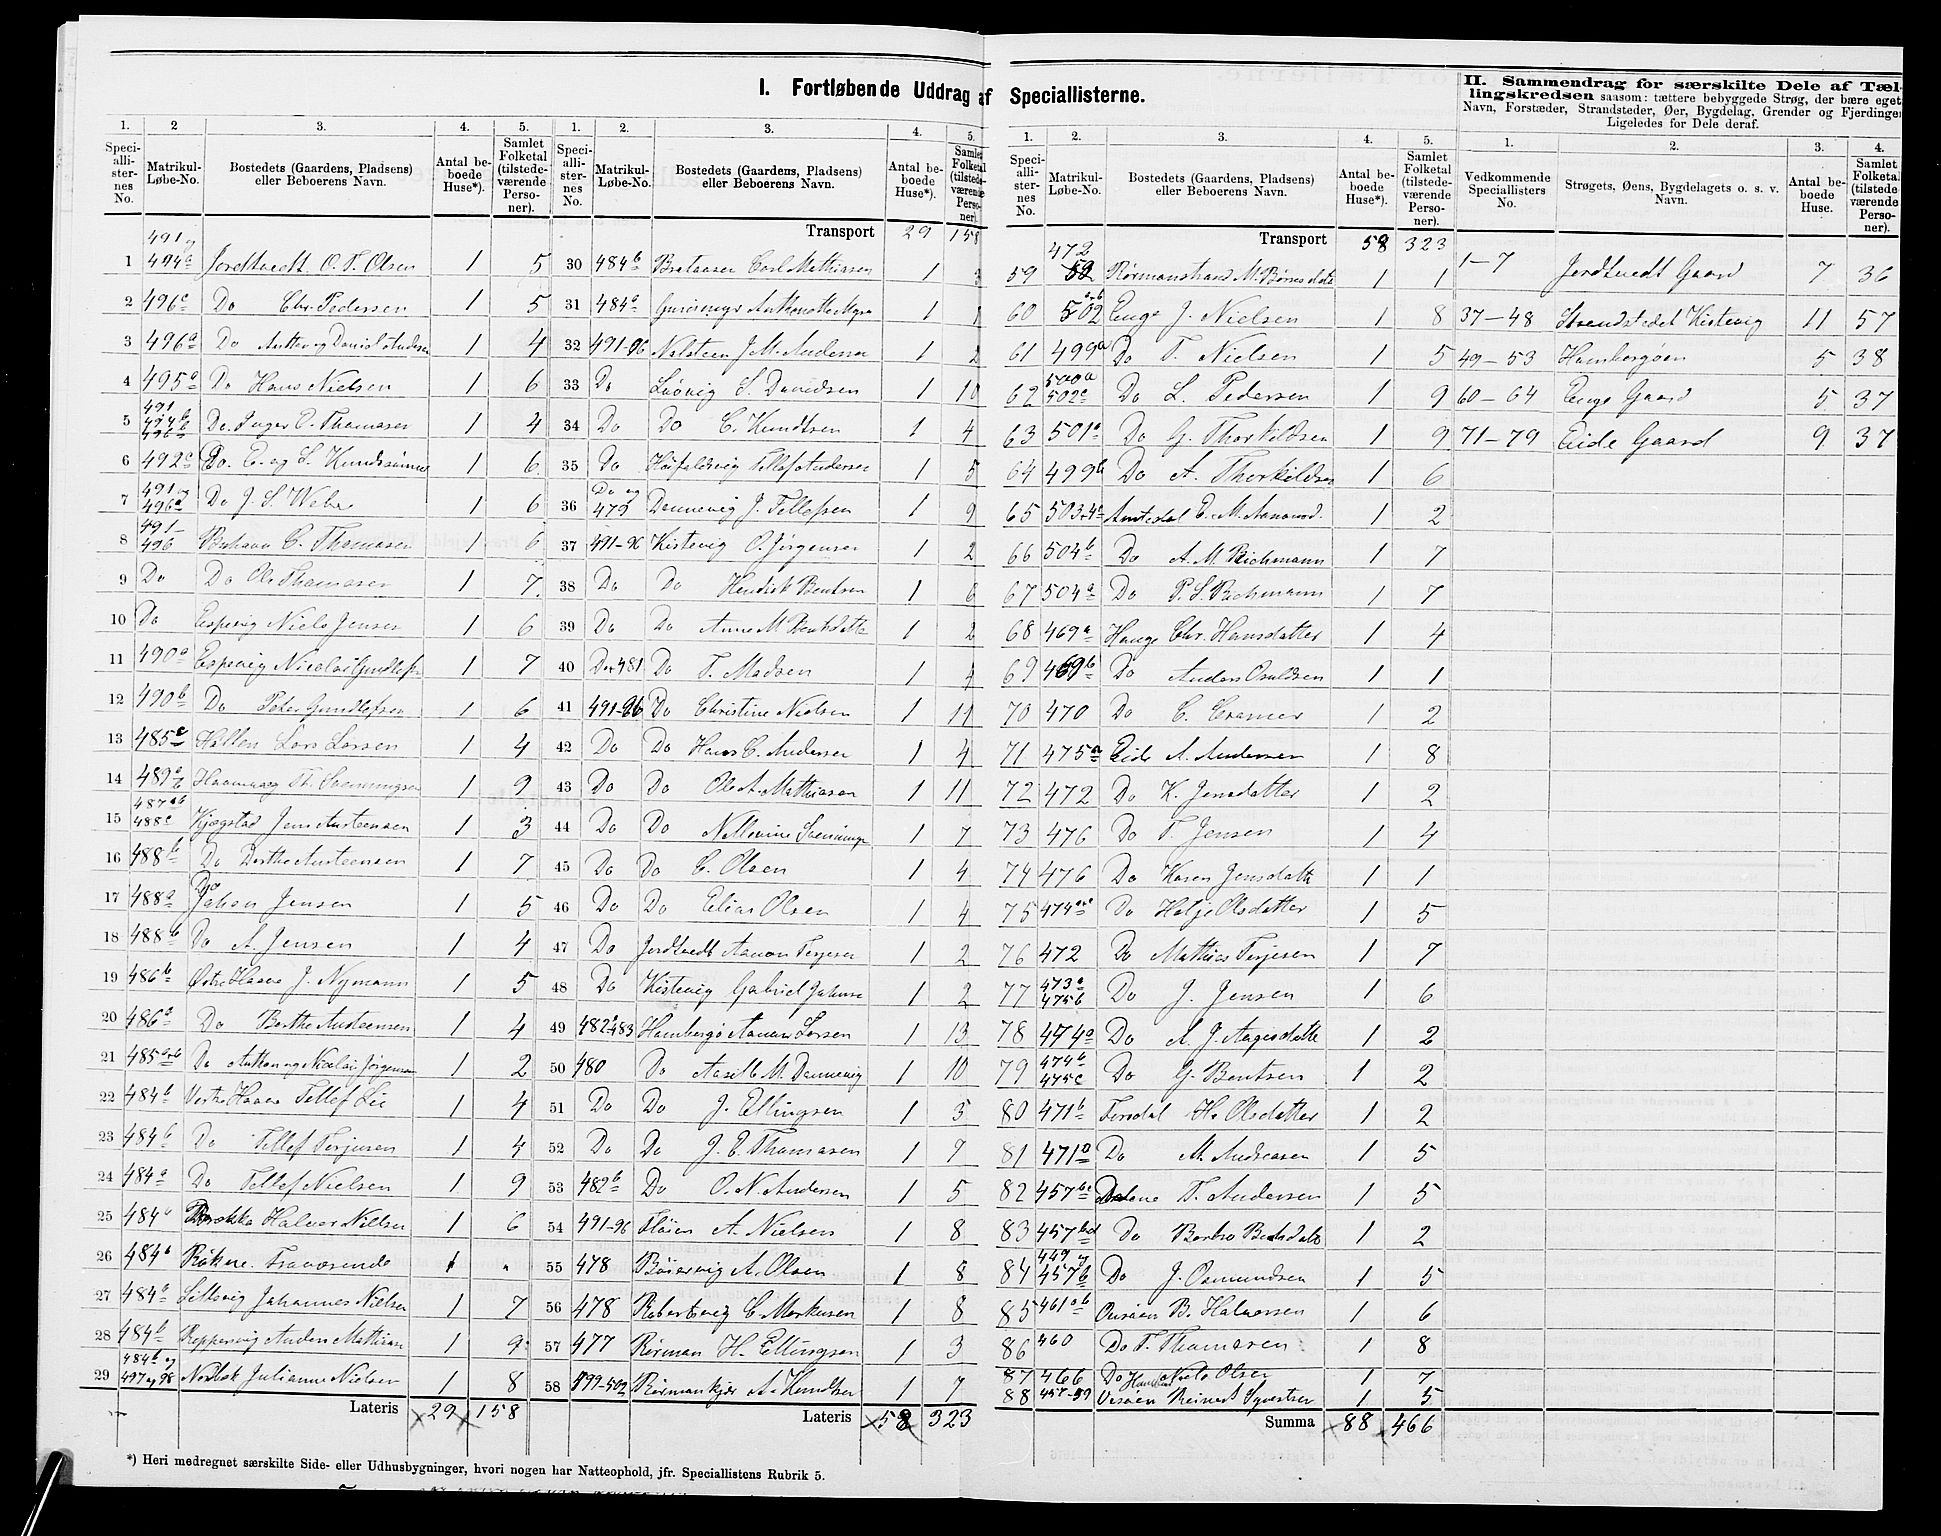 I. Fortløbende Uddrag af Speciallisterne.
II. Sammendrag for særskilte Dele af Tællingskredsen saasom: tættere bebyggede Strøg, der bære eget
Navn, Forstæder, Strandsteder, Øer, Bygdelag, Grender og Fjerdinger
Ligeledes for Dele deraf.
1. 2 3. 4. 5.
Speciallisternes No. Matrikul-Løbe-No. Bostedets (Gaardens, Pladsens) eller Beboerens Navn. Antal beboede Huse*). Samlet Folketal (tilstedeværende Personer).
491 og 494a
1 Jordtvedt O. T. Olsen 1 5
2 496c Do Chr. Pedersen 1 5
3 496a Do Anthon og Daniel Andersen 1 4
4 495a Do Hans Nielsen 1 6
5 491 494b Do. Inger O. Thomasen 1 4
6 492a Do. E. og S. Knudssønner 1 6
7 491 og 496a Do J. S. Weber 1 6
8 491-496 C. Thomasen 1 6
9 Do Do Ole Thomasen 1 7
10 Do Espevig Niels Jensen 1 6
11 490a Espevig Nicolai Gundlefsen 1 7
12 490b Do Peter Gundlefsen 1 6
13 485c Hallen Lars Larsen 1 4
14 489 1 9
15 487ab 488c Kjægstad Jens Austeensen 1 3
16 488b Do Berthe Austeensen 1 7
17 488a Do Johan Jensen 1 5
18 488b Do A. Jensen 1 4
19 486b Østre Haave J. Nymann 1 5
20 486a Do Berthe Austeensen 1 4
21 485ab Do Anthon og Nicolai Jørgensen 1 2
22 484b Vestre Haave Tellef Lie 1 4
23 484b Do Tellef Terjesen 1 4
24 484a Do Tellef Nielsen 1 9
25 484a Halvor Nielsen 1 6
26 484b Røkene. Fraværende
27 484a Johannes Nielsen 1 7
28 484b Reppervig Anders Mathiasen 1 9
29 484b og 497 og 98 Julianne Nielsen 1 8
Lateris 29 158
1. 2. 3. 4. 5.
Speciallisternes No. Matrikul-Løbe-No. Bostedets (Gaardens, Pladsens) eller Beboerens Navn. Antal beboede Huse*). Samlet Folketal (tilstedeværende Personer).
Transport 29 158
30 484b Carl Mathissen 1 3
31 484a 1 1
32 491-96 J. M. Andersen 1 2
33 Do S. Davidsen 1 10
34 Do Do C. Knudtsen 1 4
35 Do Tellef Andersen 1 5
36 Do og 479 Dannevig J. Tellefsen 1 9
37 491-96 Kistevig O. Jørgensen 1 2
38 Do Do Hendrik Bentsen 1 6
39 Do Do Anne M. Bentsdatter 1 2
40 Do 481 Do T. Madsen 1 4
41 491-96 Do Christine Nielsen 1 11
42 Do Do Hans C. Andersen 1 4
43 Do Do Ole A. Mathiasen 1 11
44 Do Do 1 7
45 Do Do C. Olsen 1 4
46 Do Do Elias Olsen 1 4
47 Do Jordtvedt Aanon Terjesen 1 2
48 Do Kistevig Gabriel Johnsen 1 2
49 482a 483 Hambergø Aanon Larsen 1 13
50 480 Do Aasille M. Dannevig 1 10
51 Do Do J. Ellingsen 1 5
52 Do Do J. E. Thomasen 1 7
53 482b Do O. N. Andersen 1 5
54 491-96 Fløien A. Nielsen 1 8
55 478 A. Olsen 1 8
56 478 Robertsvig C. Markusen 1 8
57 477 Rørman H. Ellingsen 1 3
58 499-502 Rørmankjær A. Knudtsen 1 7
Lateris 58 323
1. 2. 3. 4. 5.
Speciallisternes No. Matrikul-Løbe-No. Bostedets (Gaardens, Pladsens) eller Beboerens Navn. Antal beboede Huse*). Samlet Folketal (tilstedeværende Personer).
Transport 58 323
59 472 Rørmanstrand M. Børresdatter 1 1
60 502ab Enge J. Nielsen 1 8
61 499a Do T. Nielsen 1 5
62 500a 502c Do L. Pedersen 1 9
63 501a Do G. Thorkildsen 1 9
64 499b Do A. Thorkildsen 1 6
65 503 4c E. M. 1 2
66 504b Do A. M. Richmann 1 7
67 504a Do P. S. Richmann 1 7
68 469a Hauge Chr. Hansdatter 1 4
69 469b Do Anders Osuldsen 1 1
70 470 Do C. Cramer 1 2
71 475a Eide A. Andersen 1 8
72 472 Do K. Jensdatter 1 2
73 476 Do T. Jensen 1 4
74 476 Do Karen Jensdatter 1 1
75 474 Do Helje Olsdatter 1 5
76 472 Do Mathias Terjesen 1 7
77 473a 475b Do J. Jensen 1 6
78 474a Do A. J. Aagesdatter 1 2
79 474b 475c Do G. Bentsen 1 2
80 471b H. Olsdatter 1 2
81 471a Do M. Andreasen 1 5
82 457bc T. Andersen 1 5
83 457bd Do Berthe 1 2
84 449 og 457b Do J. Osmundsen 1 5
85 461ab B. Halvorsen 1 6
86 460 Do T. Thomasen 1 8
87 466 Do Niels Olsen 1 7
88 457-59 Reinert Syvertsen 1 5
Summa 88 466
1. 2. 3. 4.
Vedkommende Speciallisters No. Strøgets, Øens, Bygdelagets o. s. v. Navn. Antal beboede Huse. Samlet Folketal (tilstedeværende Personer).
1-7 Jordtvedt Gaard 7 36
37-48 Strandstedet Kistevig 11 57
49-53 Hambergøen 5 38
60-64 Enge Gaard 5 37
71-79 Eide Gaard 9 37
*) Heri medregnet særskilte Side- eller Udhusbygninger, hvori nogen har Natteophold, jfr. Speciallistens Rubrik 5.